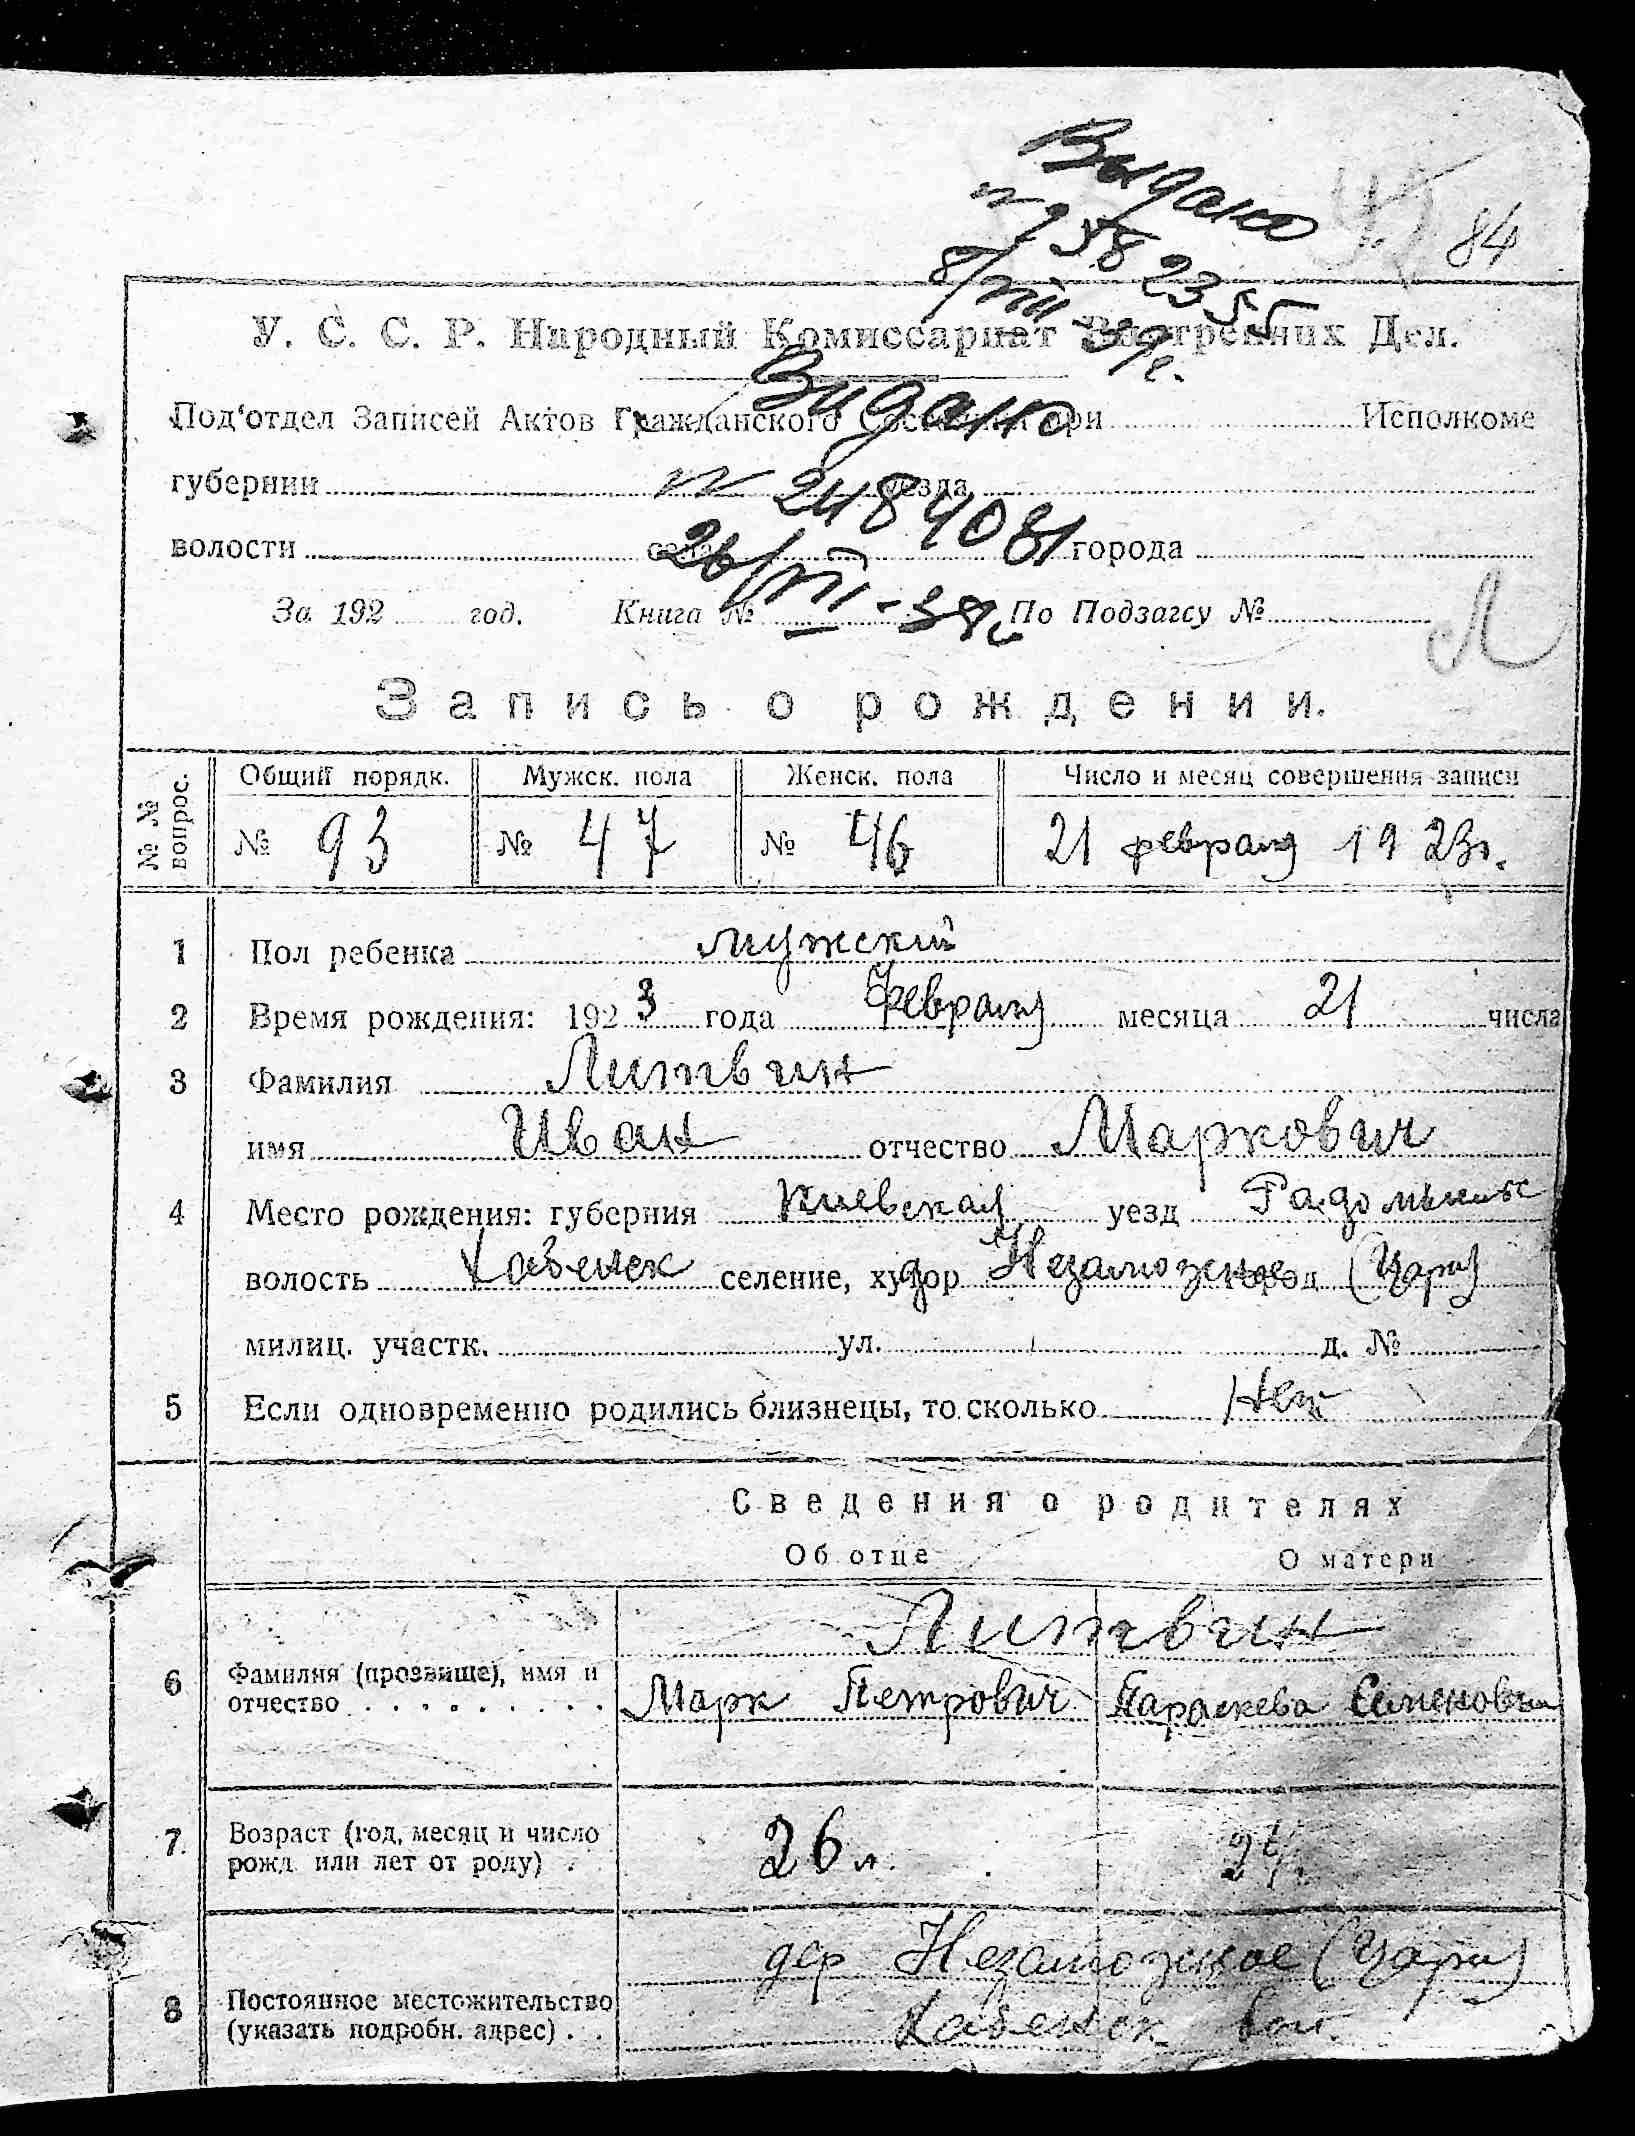 Выдано
84
№ 9582355
8/VIII 39г.
У. С. С. Р. Народный Комиссариат Внутренних Дел.
Видано
Под'отдел Записей Актов Гражданского Состояния при Исполкоме
губернии уезда
№ 2484081
волости села города
26/VIII - 39г
За 192 год. Книга № По Подзагсу №
Л
Запись о рождении.
№ № вопрос. Общий порядк. Мужск. пола Женск. пола Число и месяц совершения записи
№ 93 № 47 № 46 21 февраля 1923г.
1 Пол ребенка мужской
2 Время рождения: 1923 года Февраля месяца 21 числа
3 Фамилия Литвин
имя Иван отчество Маркович
4 Место рождения: губерния Киевская уезд Радомыськ
волость Кабанск селение, хутор Незаможное город (Цари)
милиц. участк. ул. д. №
5 Если одновременно родились близнецы, то сколько Нет
Сведения о родителях
Об отце О матери
Литвин
6 Фамилия (прозвище), имя и
отчество Марк Петрович Параскева Семеновна
7 Возраст (год, месяц и число
рожд или лет от роду) 26 л. 24
дер Незаможное (Цари)
8 Постоянное местожительство
(указать подробн. адрес) вол.